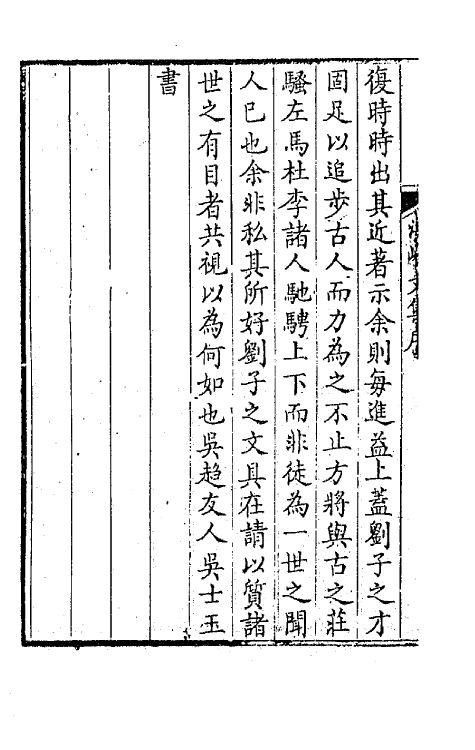 復時時出其近著示余則每進益上蓋劉子之才
固足以追步古人而力為之不止方將與古之莊
騷左馬杜李諸人馳騁上下而非徒為一世之聞
人已也余非私其所好劉子之文具在請以質諸
世之有目者共視以為何如也吳趨友人吳士玉
書